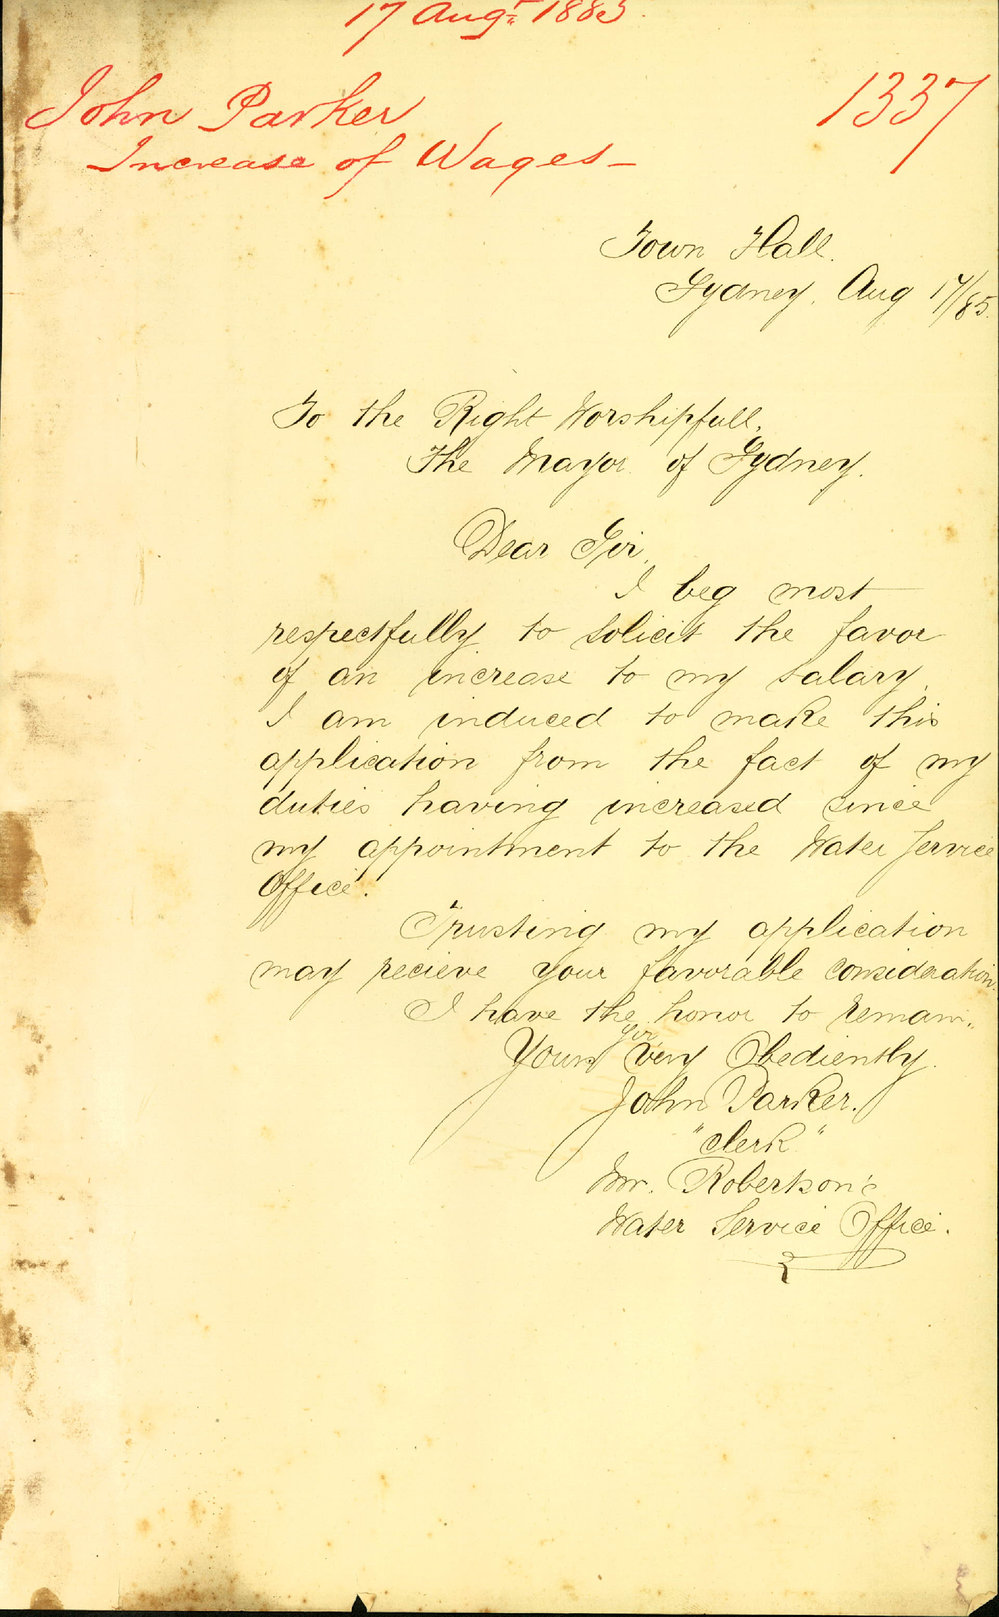 17 Augt. 1885.
John Parker
1337
Increase of Wages -
Town Hall.
Sydney. Aug 17/85.
To the Right Worshipfull,
The Mayor of Sydney.
Dear Sir,
I beg most
respectfully to solicit the favor
of an increase to my salary.
I am induced to make this
application from the fact of my
duties having increased since
my appointment to the Water Service
Office.
Trusting my application
may recieve your favorable consideration.
I have the honor to remain,
Sir,
Yours very Obediently.
John Parker.
"Clerk"
Mr. Robertson's
Water Service Office.